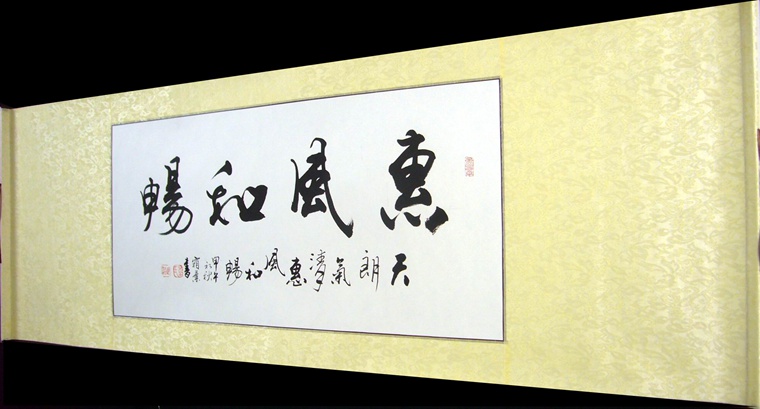 惠風和暢
天朗氣清惠風和暢
甲午
書